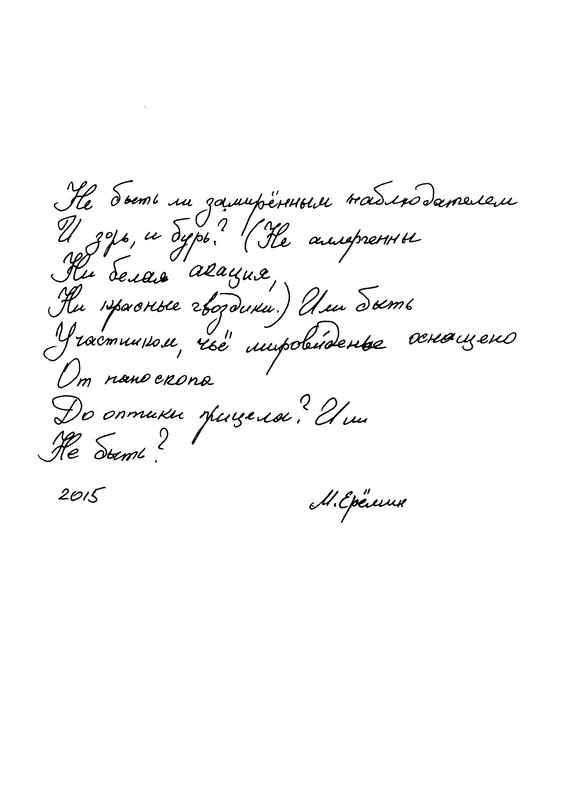 Не быть ли замирённым наблюдателем
И зорь, и бурь? (Не аллергенны
Ни белая акация,
Ни красные гвоздики.) Или быть
Участником, чьё мирови́денье оснащено
От наноскопа
До оптики прицела? Или
Не быть?
2015 М. Ерёмин